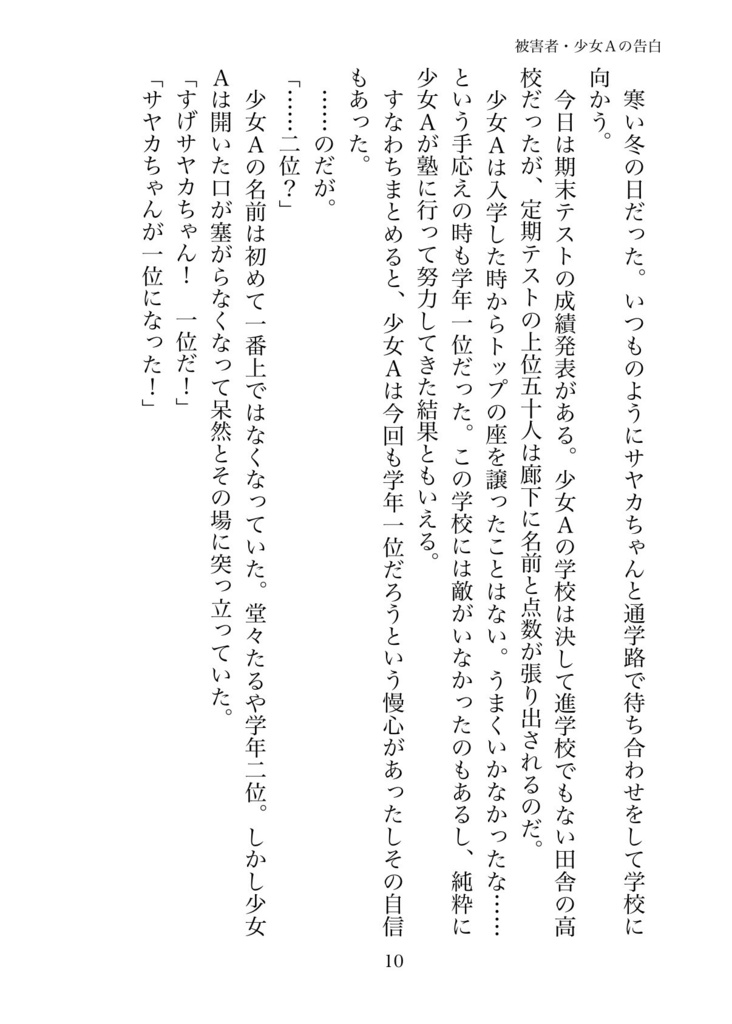 被害者・少女Ａの告白
　寒い冬の日だった。いつものようにサヤカちゃんと通学路で待ち合わせをして学校に
向かう。
　今日は期末テストの成績発表がある。少女Ａの学校は決して進学校でもない田舎の高
校だったが、定期テストの上位五十人は廊下に名前と点数が張り出されるのだ。
　少女Ａは入学した時からトップの座を譲ったことはない。うまくいかなかったな……
という手応えの時も学年一位だった。この学校には敵がいなかったのもあるし、純粋に
少女Ａが塾に行って努力してきた結果ともいえる。
　すなわちまとめると、少女Ａは今回も学年一位だろうという慢心があったしその自信
もあった。
　……のだが。
「……二位？」
　少女Ａの名前は初めて一番上ではなくなっていた。堂々たるや学年二位。しかし少女
Ａは開いた口が塞がらなくなって呆然とその場に突っ立っていた。
「すげサヤカちゃん！　一位だ！」
「サヤカちゃんが一位になった！」
10